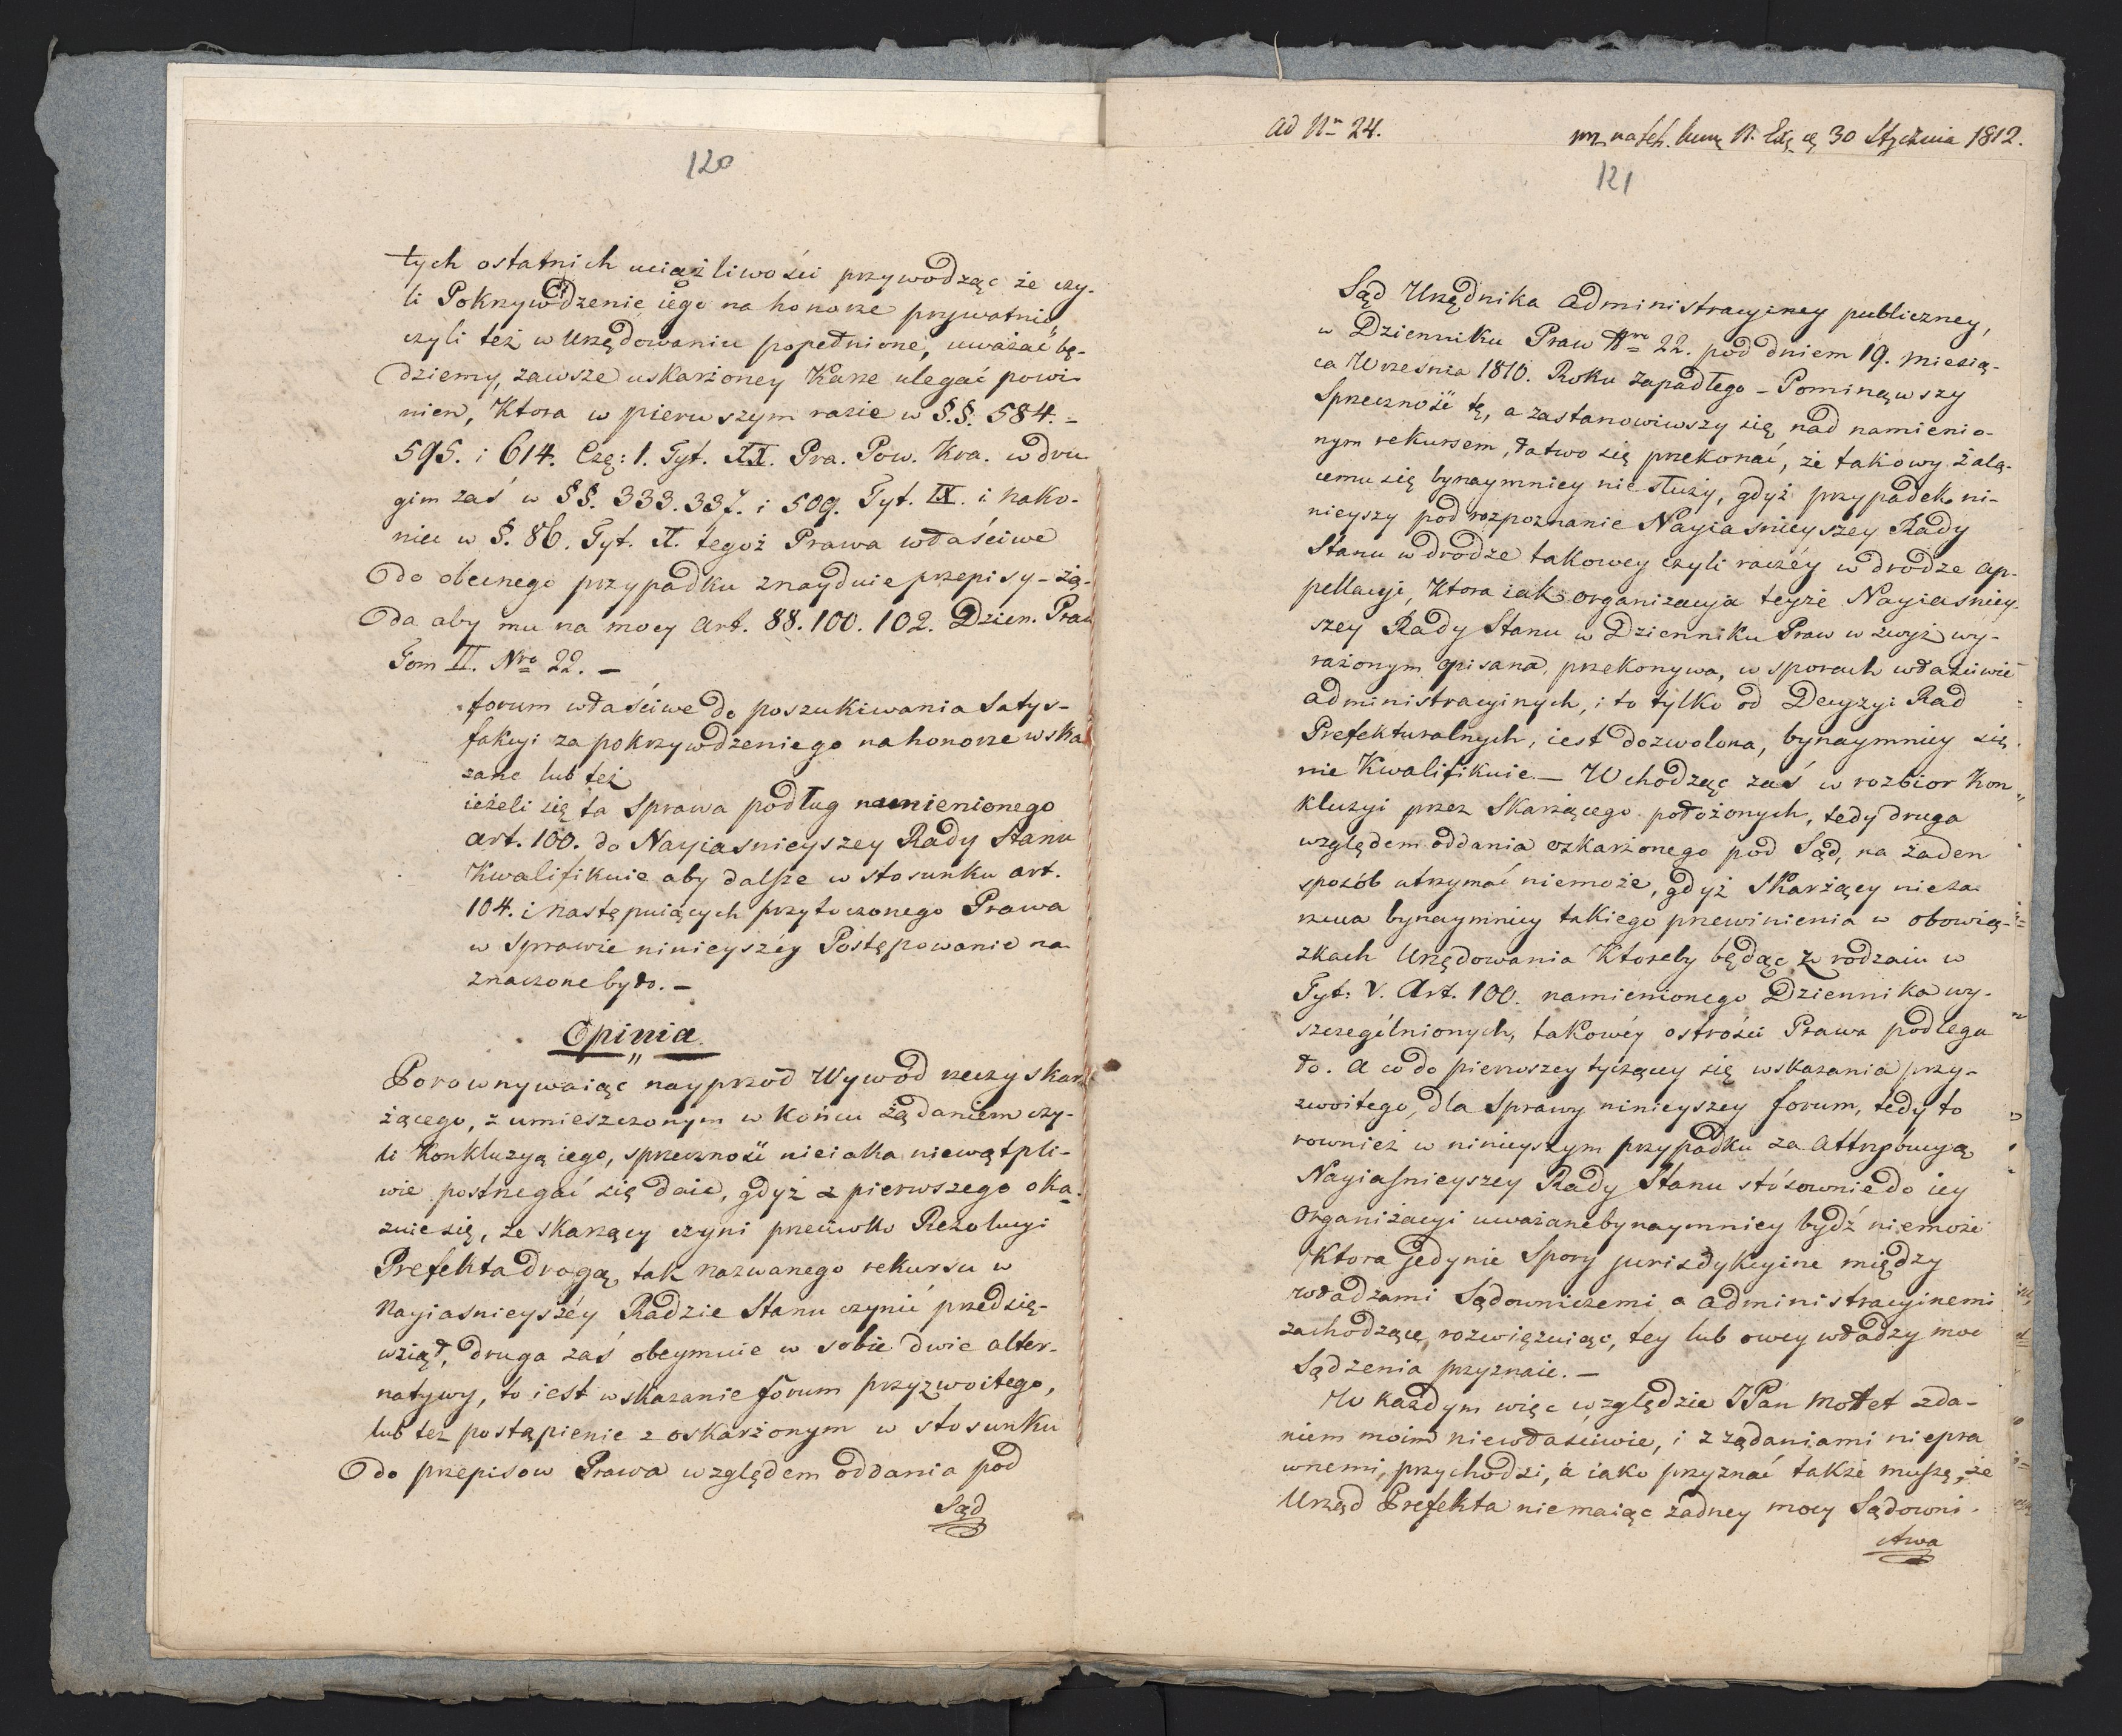 120
tych ostatnich uciążliwości przywodząc że czy-
li Pokrzywdzenie iego na honorze prywatnie
czyli też w Urzędowaniu popełnione, uważać bę-
dziemy, zawsze uskarżoney Karze ulegać powi-
nien, Ktora w pierwszym razie w §.§. 584.=
595. i 614. Czę: 1. Tyt. XX. Pra. Pow. Kra. w dru
gim zaś w §§. 333. 337. i 509. Tyt. IX. i nako-
niec w §. 86. Tyt. II. tegoż Prawa właściwe
do obecnego przypadku znayduie przepisy - żą-
da aby mu na mocy Art. 88. 100. 102. Dzien. Praw
Tom II. Nro 22. -
forum właściwe do poszukiwania Satys-
fakcyi za pokrzywdzeniego na honorze wska
zane lub też
ieżeli się ta Sprawa podług namienionego
art. 100. do Nayiasnieyszey Rady Stanu
Kwalifikuie aby dalsze w stosunku art.
104. i następuiących przytoczonego Prawa
w Sprawie ninieyszéy Postępowanie na
znaczone było. -
Opinia
Porownywaiąc nayprzod Wywod rzeczy skar
żącego, z umieszczonym w Końcu żądaniem czy-
li Konkluzyą iego, sprzeczność nieiaka niewątpli-
wie postrzegać się daie, gdyż z pierwszego oka-
zuie się, że skarzący czyni przeciwko Rezolucyi
Prefekta drogą, tak nazwanego rekursu w
Nayiasnieyszéy Radzie Stanu czynić przedsię-
wziął, druga zaś obeymuie w sobie dwie alter-
natywy, to iest wskazanie forum przyzwoitego,
lub też postąpienie z oskarżonym w stosunku
do przepisow Prawa względem oddania pod
Sąd
ad Nr 24. 30 Stycznia 1812.
121
Sąd Urzędnika Administracyiney publiczney,
w Dzienniku Praw Nro 22. pod dniem 19. miesią-
ca Wrzesnia 1810. Roku zapadłego - Pominąwszy
Sprzeczność tę, a zastanowiwszy się nad namienio-
nym rekursem, łatwo się przekonać, że takowy żalą-
cemu się bynaymniey nie służy, gdyż przypadek ni-
nieyszy pod rozpoznanie Nayiasnieyszey Rady
Stanu w drodze takowey czyli raczéy w drodze ap-
pellacyi, Ktora iak organizacyia teyże Nayiasniey-
szey Rady Stanu w Dzienniku Praw w zwyż wy-
rażonym opisana, przekonywa, w sporach właściwie
administracyinych, i to tylko od Decyzyi Rad
Prefekturalnych, iest dozwolona, bynaymniey się
nie Kwalifikuie. - Wchodząc zaś w rozbior Kon
kluzyi przez Skarżącego położonych, tedy druga
względem oddania ozkarżonego pod Sąd, na żaden
sposób utrzymać niemoże, gdyż Skarżący nieza
rzuca bynaymniey takiego przewinienia w obowią-
zkach Urzędowania Ktoreby będąc z rodzaiu w
Tyt: V. Art. 100. namienionego Dziennika wy-
szczególnionych, takowéy ostrości Prawa podlega
ło. a co do pierwszey tyczący się wskazania przy-
zwoitego, dla Sprawy ninieyszey forum, tedy to
rownież w ninieyszym przypadku za Attrybucyą
Nayiasnieyszey Rady Stanu stósownie do iey
Organizacyi uważane bynaymniey bydź niemoże
Ktora jedynie Spory jurisdykcyine między
władzami Sądowniczemi a administracyinemi
zachodzące, rozwiązuiąc, téy lub owey władzy moc
Sądzenia przyznaie. -
W każdym więc względzie JPan Mollet zda-
niem moim niewłasciwie, i z żądaniami niepra
wnemi, przychodzi, a iako przyznać także muszę, że
Urząd Prefekta niemaiąc żadney mocy Sądowni-
ctwa